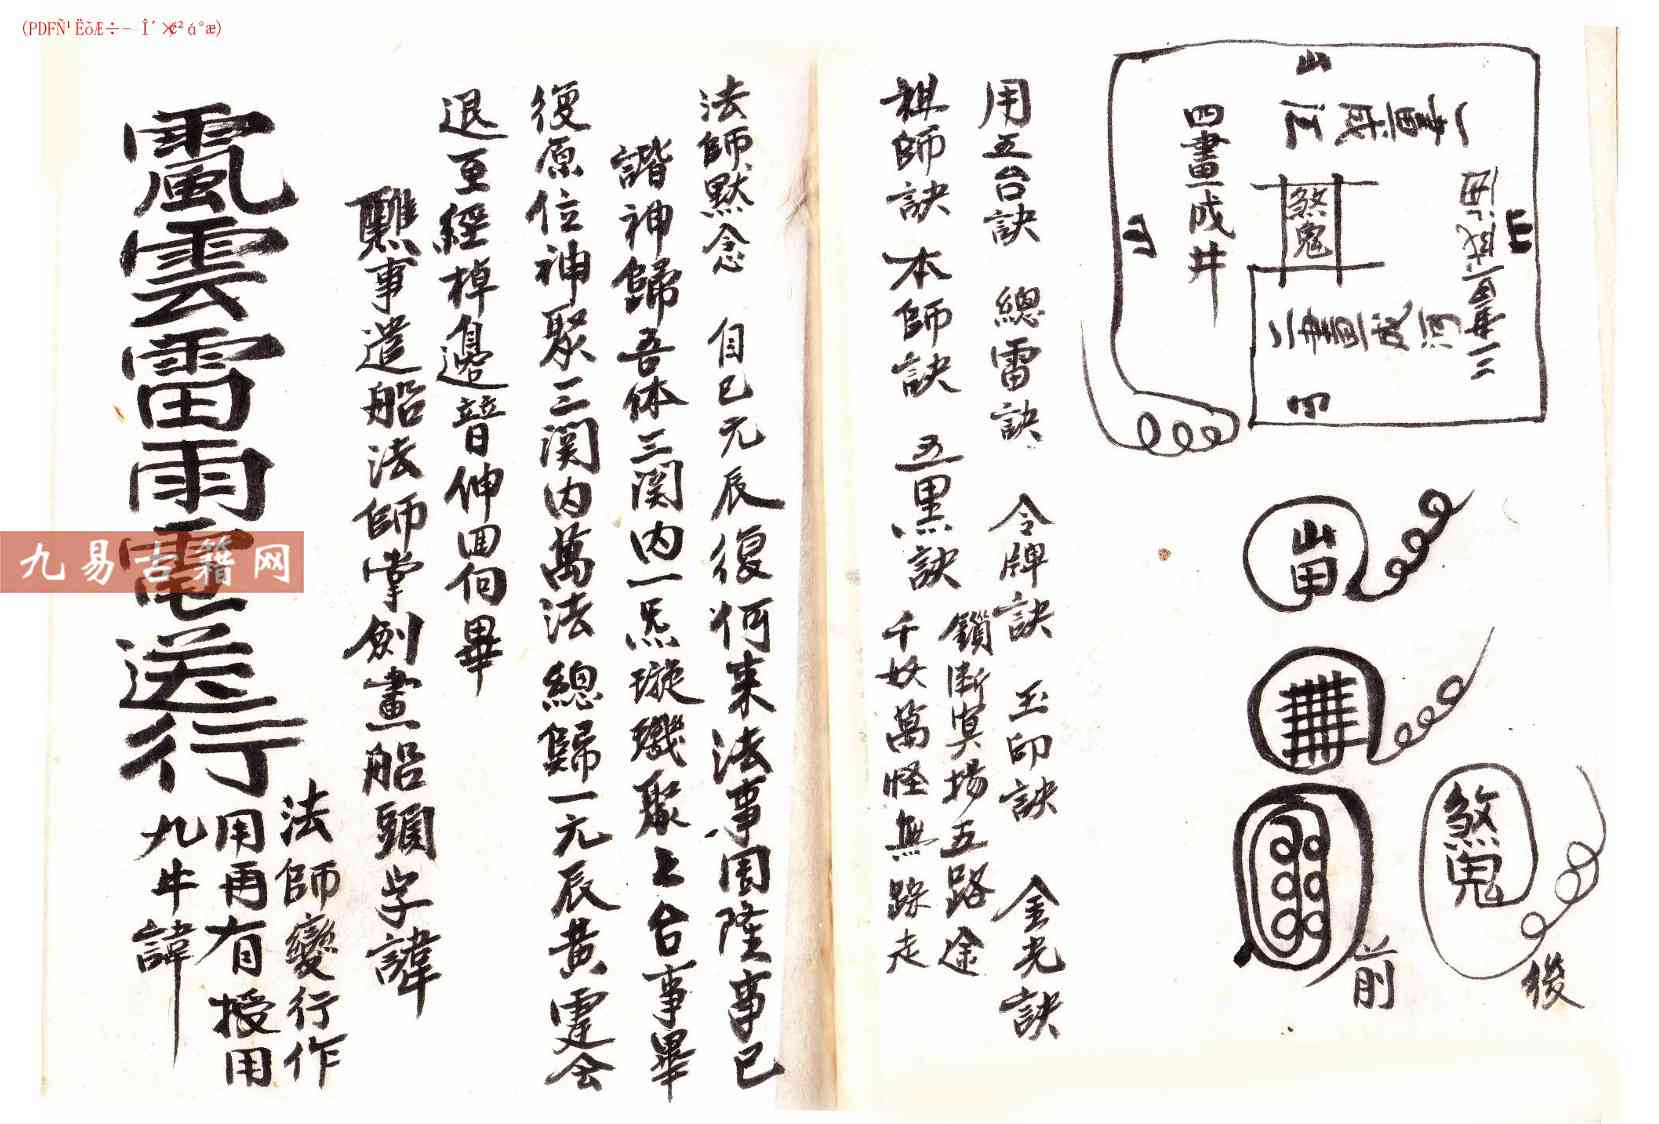 (PDFÑ¹ËõÆ÷- Î´×¢²á°æ)
山
一畫成江
四畫成井
煞鬼
山
山
三畫成海
二畫成河
山
煞鬼
前
後
用五台訣 總雷訣 令牌訣 玉印訣 金光訣
祖師訣 本師訣 五黑訣
鎖斷冥揚五路途
千妖萬怪無踪走
法師默念 自己元辰復何来法事圓隆事已
諧神歸吾体三関内一炁璇璣聚上台事畢
復原位神聚三関内萬法總歸一元辰黄
退至經棹邊 伸回向畢
事遣船法師掌劍畫船頭字諱
雲雷雨電送行
法師變行作
用再有授用
九牛諱
九易古籍网